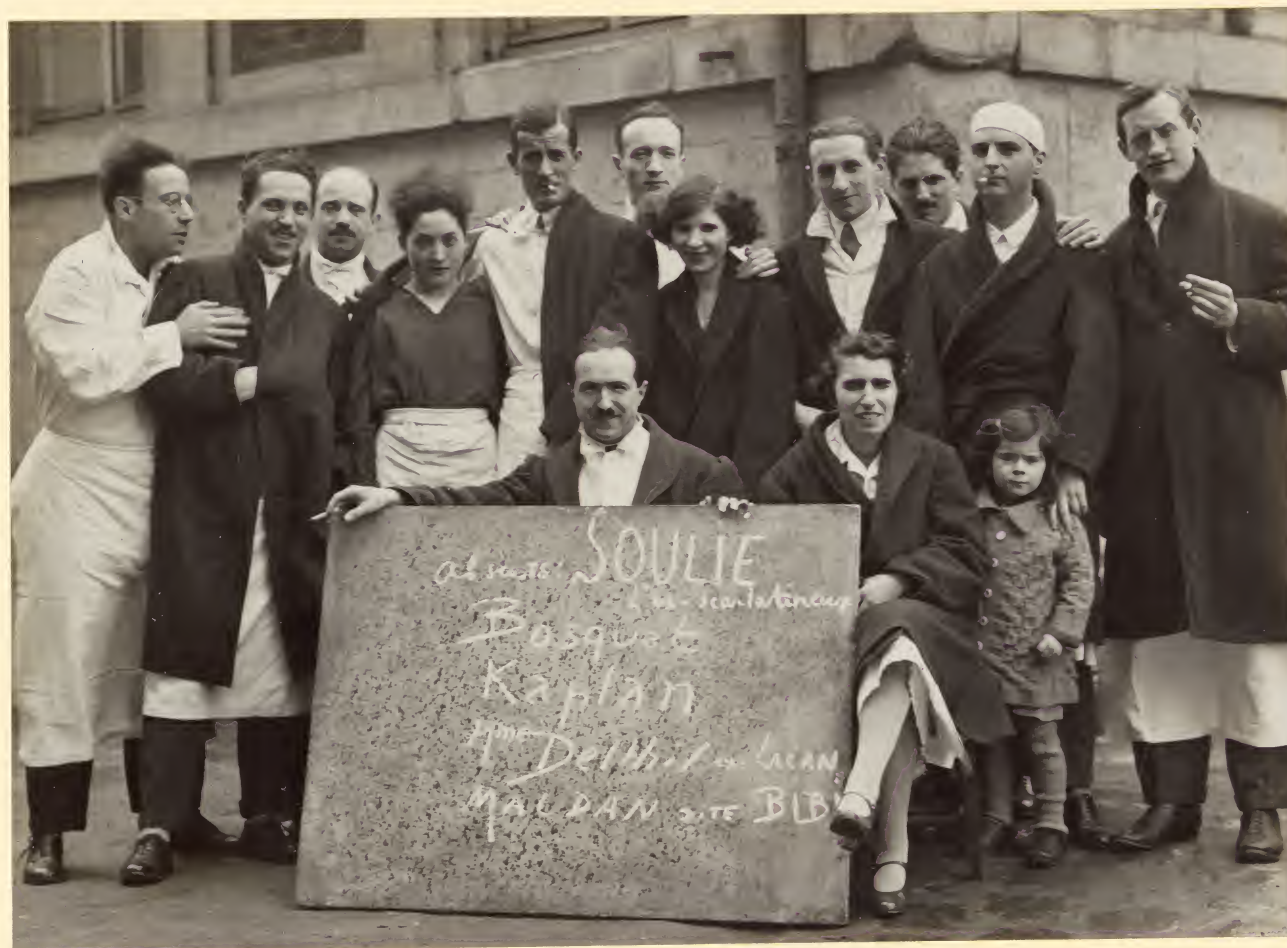 absents: SOULIE
ex-scarlatineux
Bosquet
Kaplan
Mme Delthil ex LACAN
MALDAN DITE BIBI